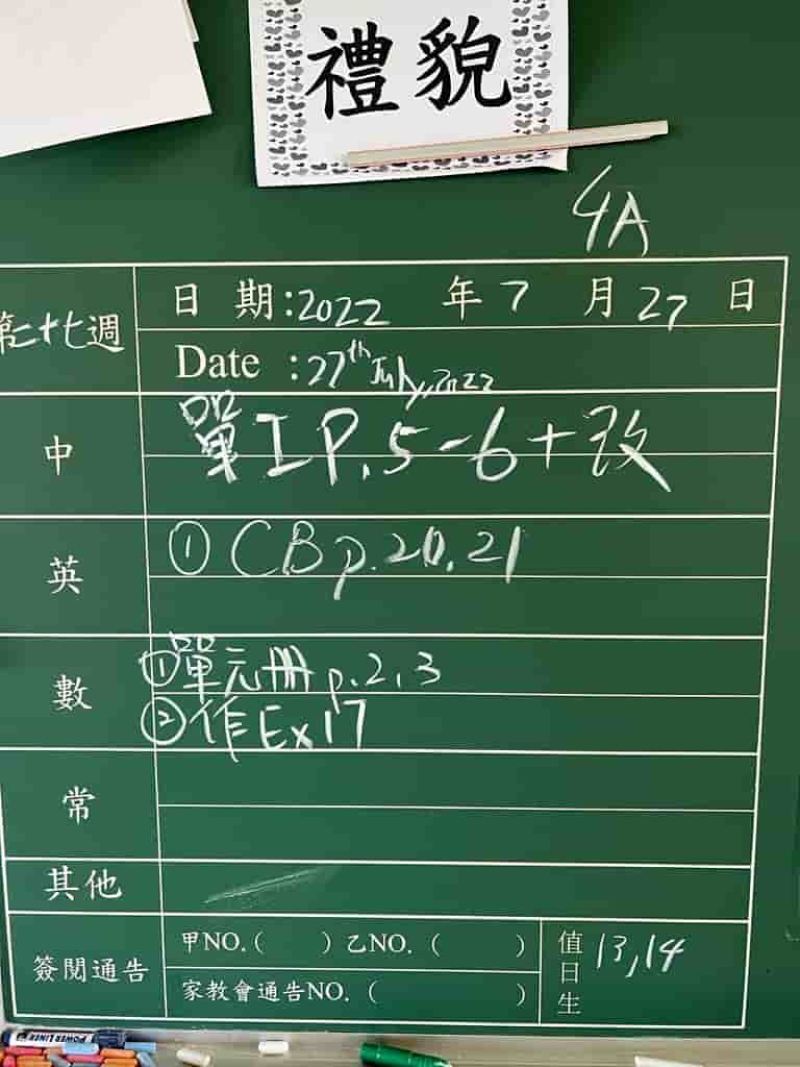 禮貌
4A
第二十七週
日期:2022年7月27日
Date :27th July, 2022
中
單工P.5-6+改
英
① CB p.20,21
數
①單元册 p.2,3
②作Ex17
常
其他
簽閱通告
甲NO.( )乙NO.( )
家教會通告NO.( )
值日生 13,14
POWER LINER